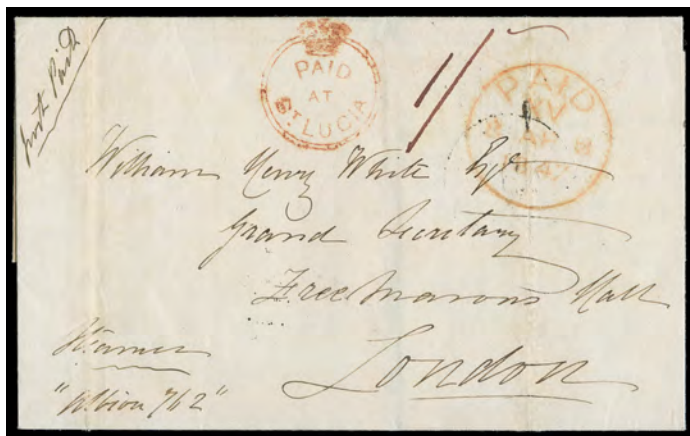 post Paid
PAID
AT
ST LUCIA
1/
PAID
1847
William Henry White Esqr
Grand Secretary
Free Masons Hall
London
Steamer
"Albion 762"